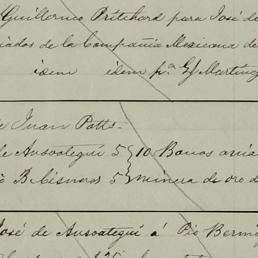 Guillermo Pritchard para José de
iados de la Compañia Mexicana de
idem idem pa. G Martin
Juan Potts.
de Ausoategui 5 } 10 Banos avia
B. Cisneros 5 } minera de oro d
José de Ausoategui á Pio Berm